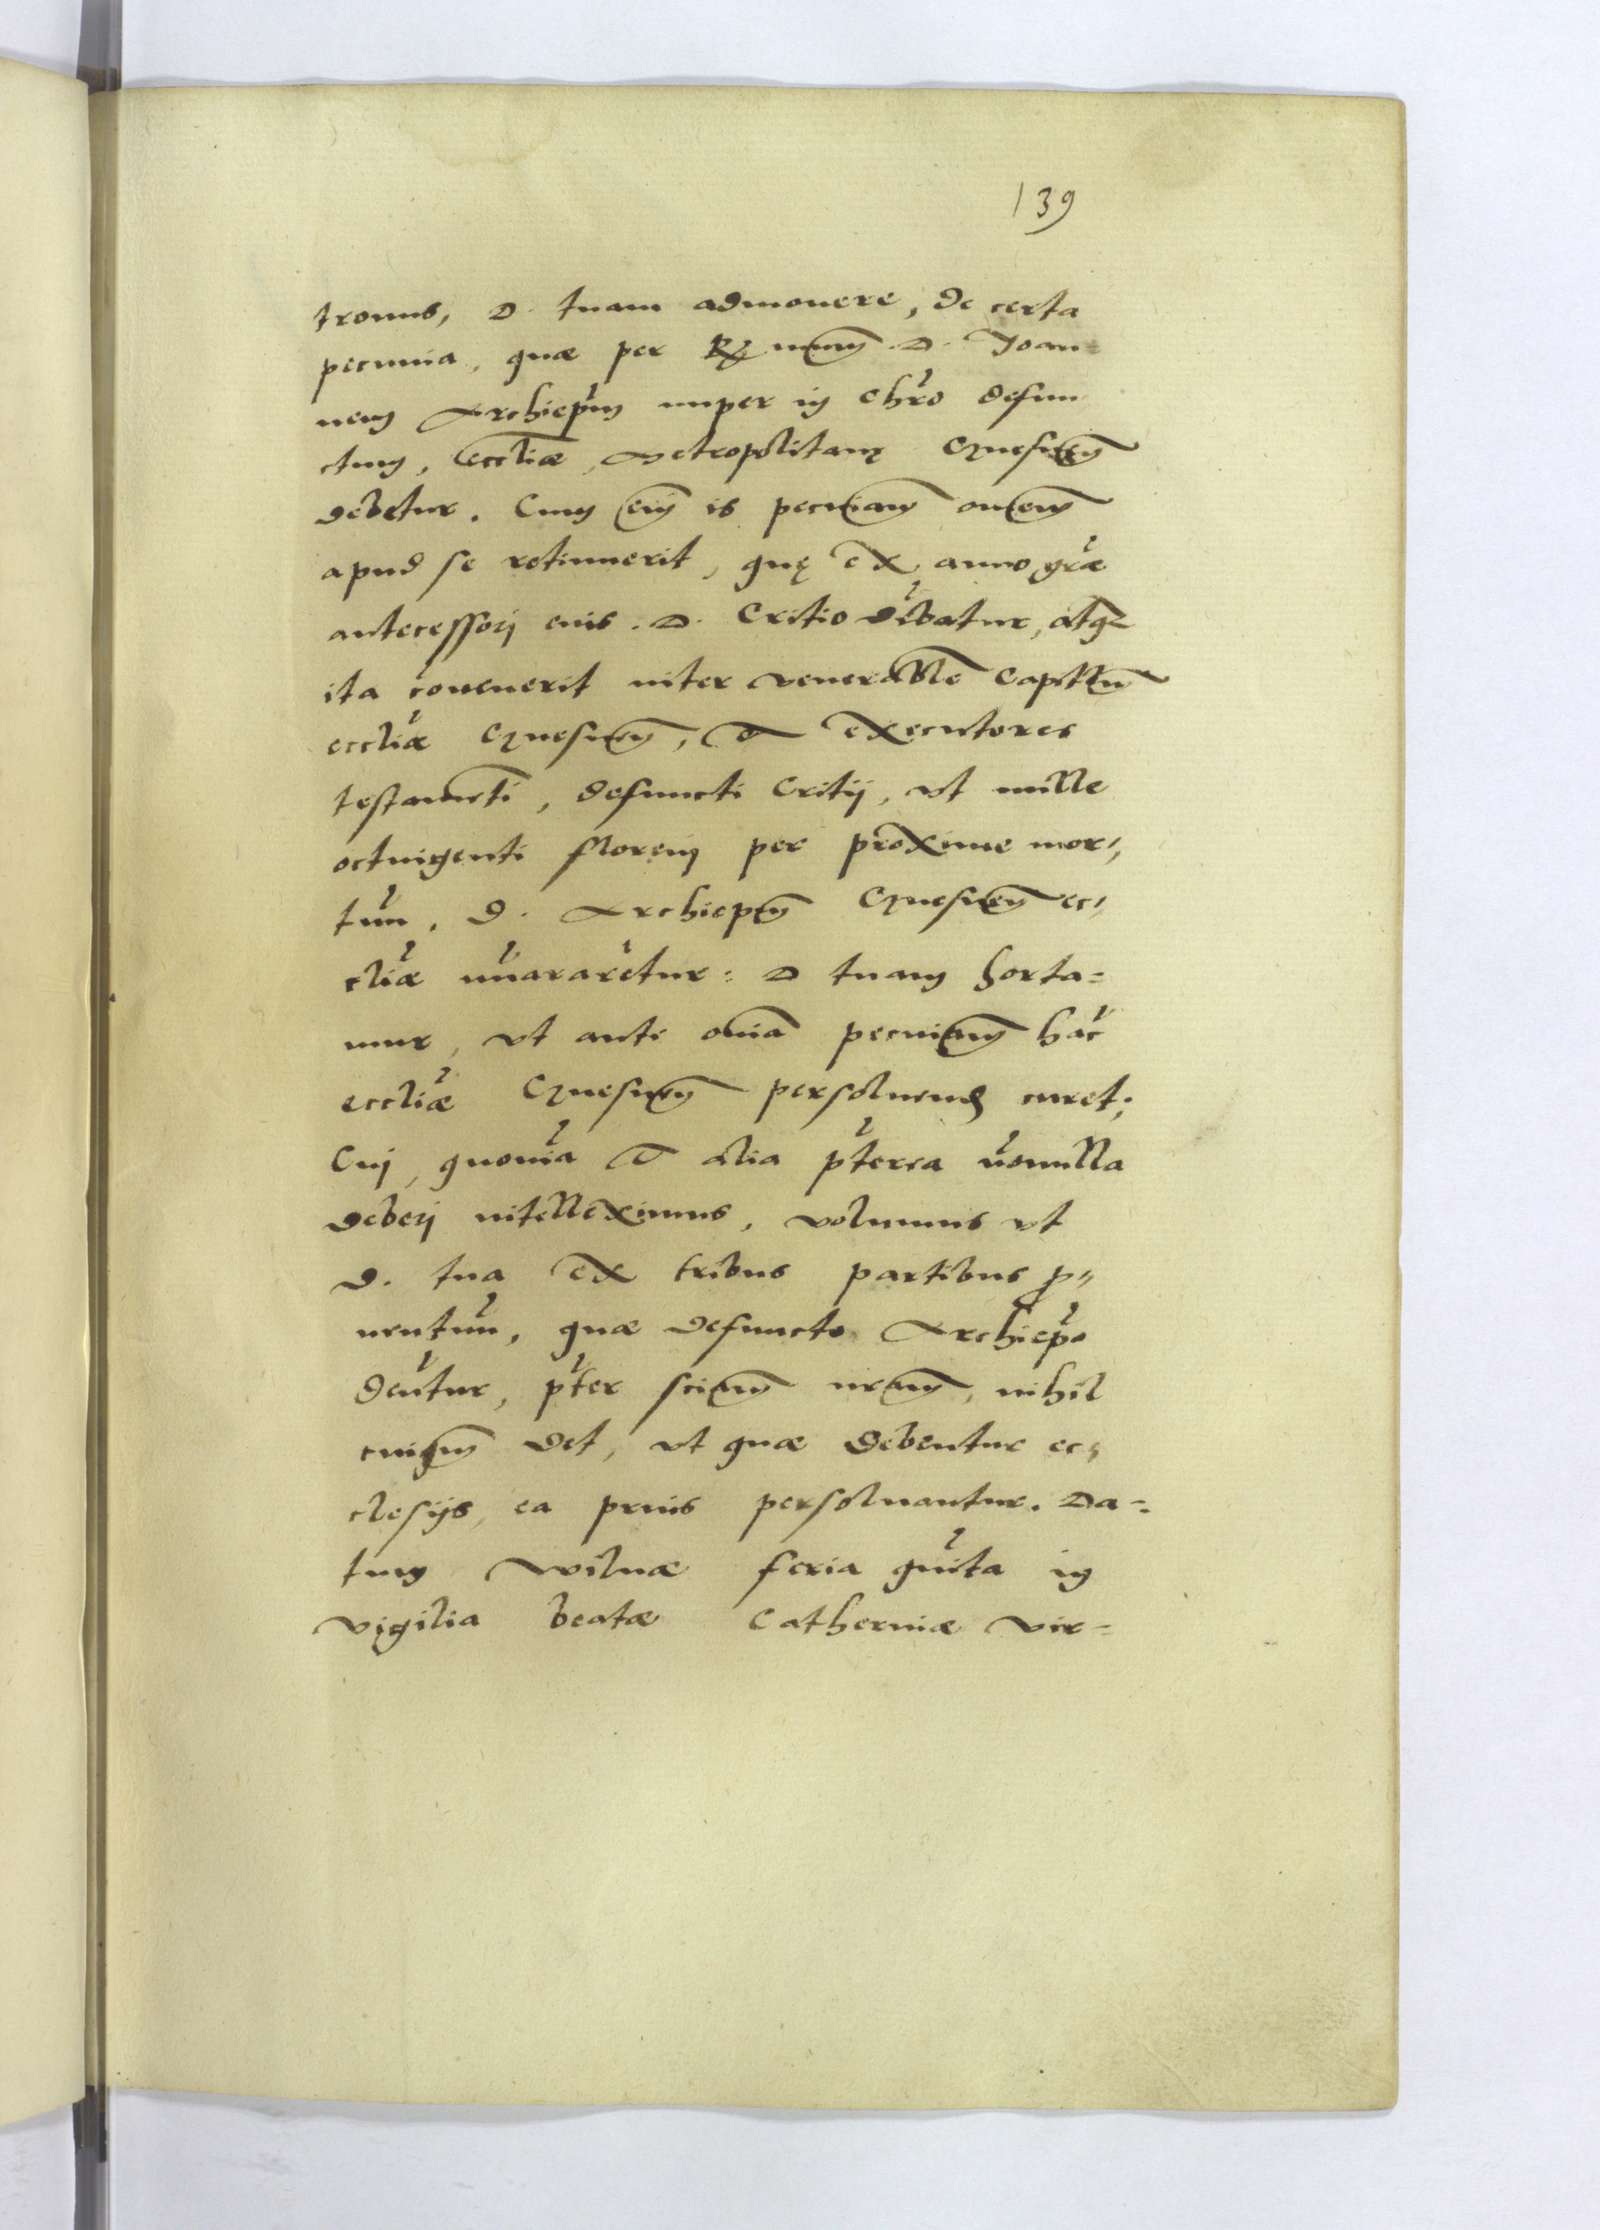 139
tronus, D. tuam admonere, de certa
pecunia, quae per Rmum D. Joan
nem Archiepum nuper in Chro defun
ctum, eccliae, Metropolitanę Gnesnen
debetur. Cum enim is pecuniam omnem
apud se retinuerit, quę ex anno grae
antecessori eius D. Critio debatur, atq
ita convenerit inter venerabile Capitlum
eccliae Gnesnen, et executores
testamenti, defuncti Critij, ut mille
octuigenti floreni per proxime mor,,
tuum, D. Archiepum Gnesnen ec,,
cliae numararetur: D tuam horta=
mur, ut ante omnia pecuniam hac
eccliae Gnesnen persolvend curet,
Cui, quoniam et alia pterea nonnulla
deberi intelleximus, volumus ut
D. tua ex tribus partibus p,,
ventuum, quae defuncto Archiepo
dentur, pter scitum nrum, nihil
cuiqm det, ut quae debentur ec,,
clesijs, ea prius persolvantur. Da=
tum Wilnae feria quinta in
vigilia beatae Catherinae vir=